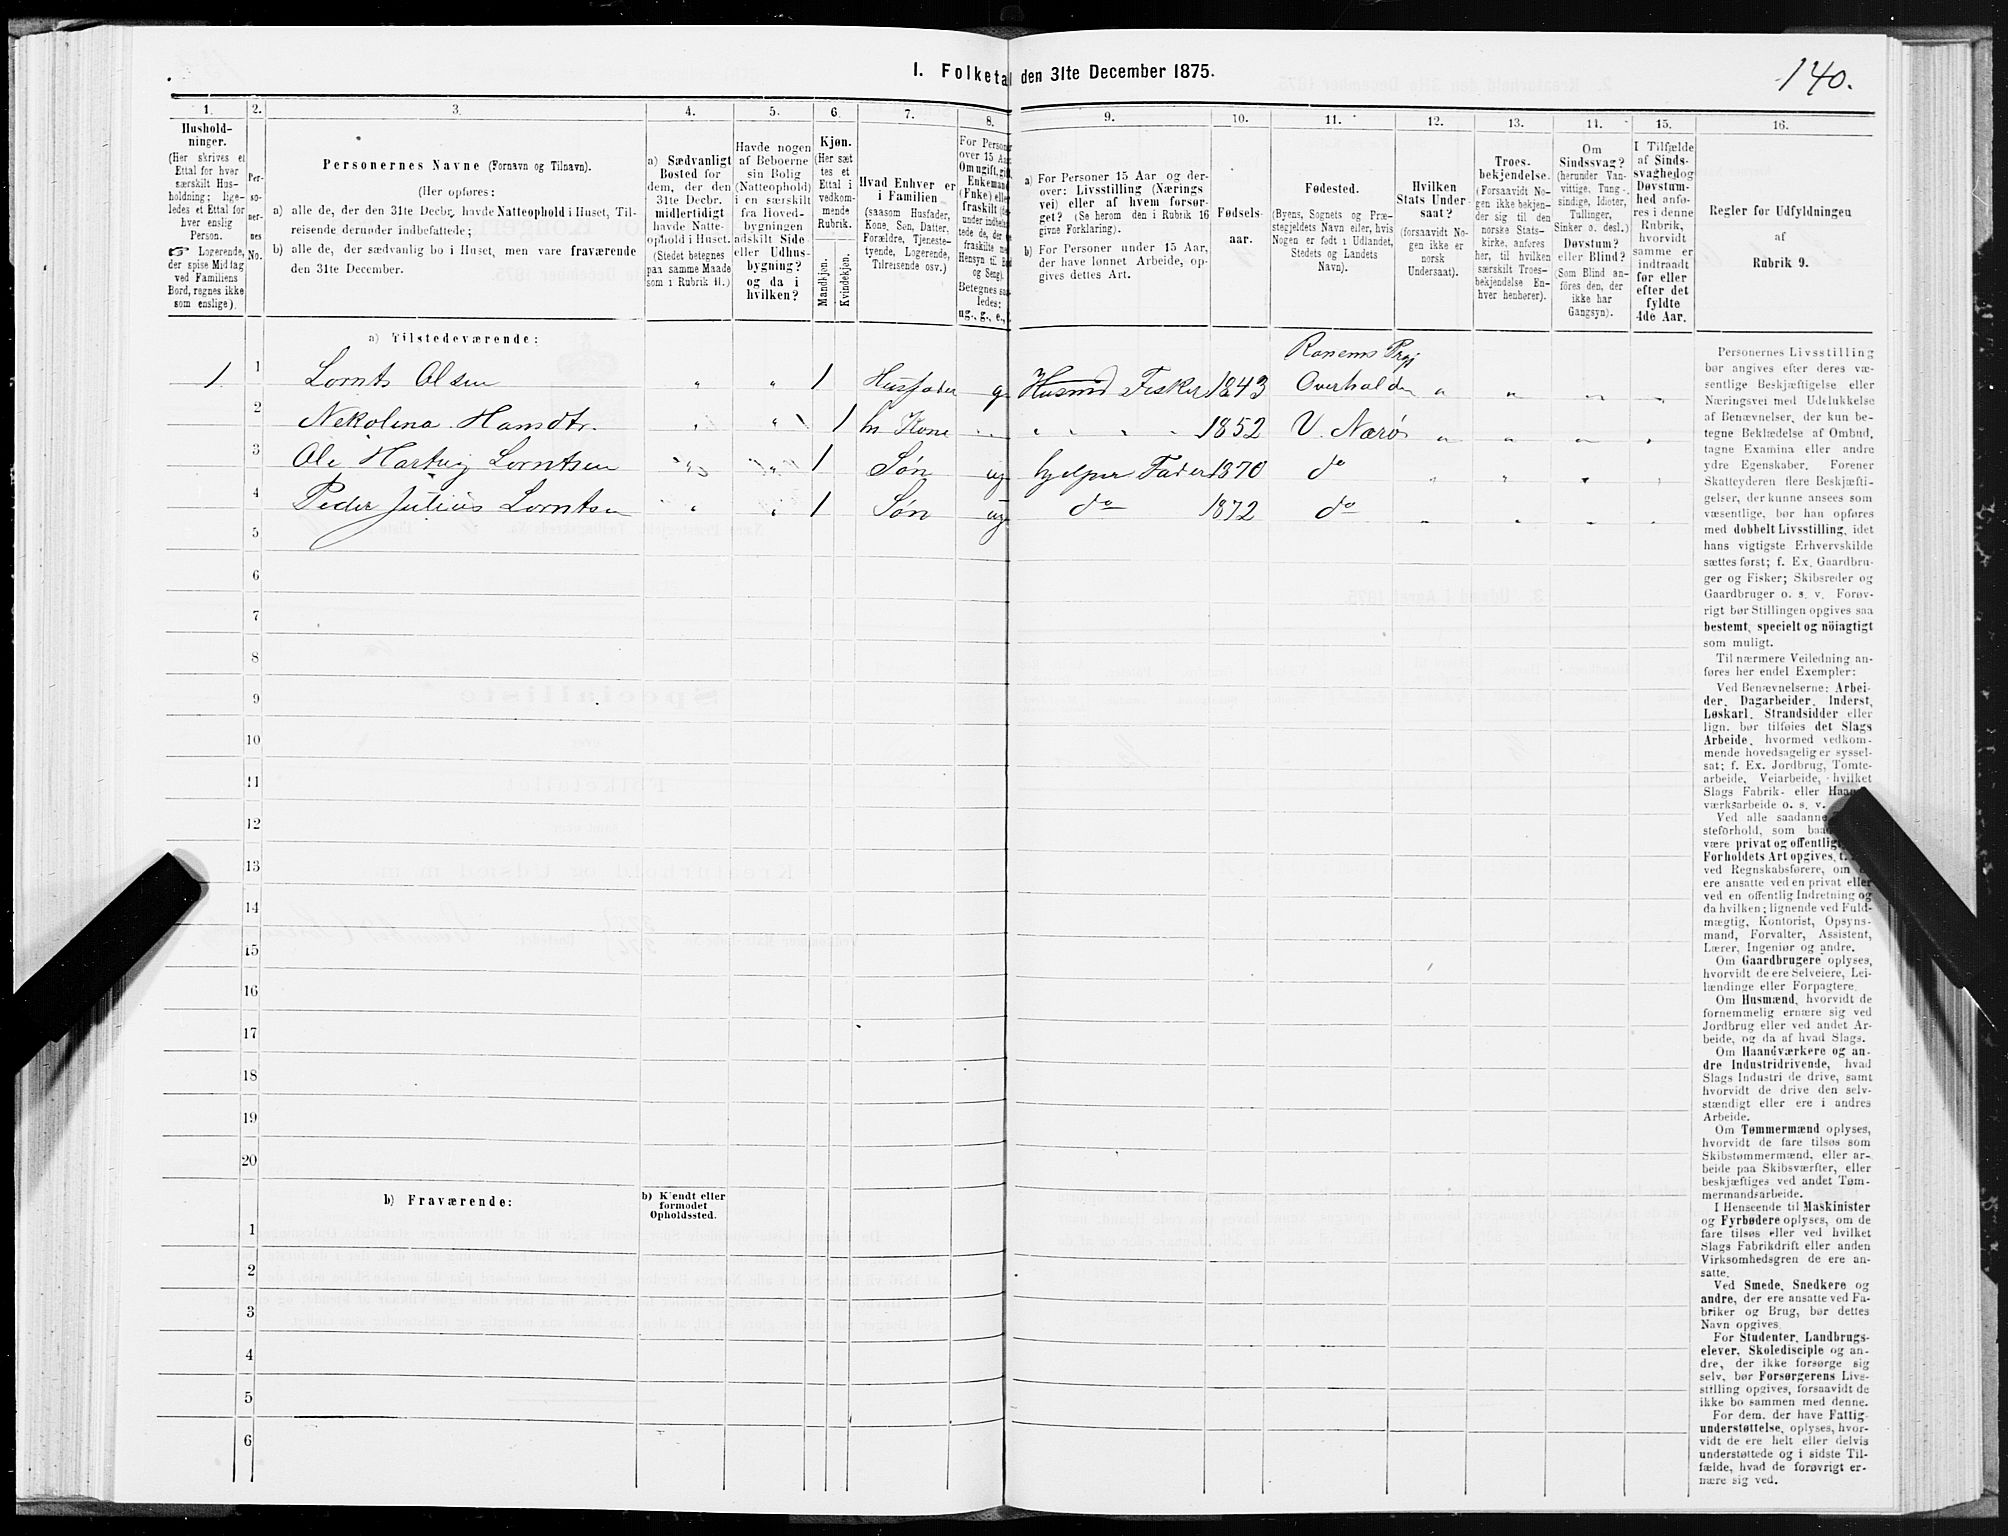 I. Folketal den 31te December 1875.
140.
1. 2. 3. 4. 5. 6. 7. 8. 9. 10. 11. 12. 13. 14. 15. 16.
Hushold-
ninger.
(Her skrives et
Ettal for hver
særskilt Hus-
holdning; lige-
ledes et Ettal for
hver enslig
Person.
☞ Logerende,
der spise Middag
ved Familiens
Bord, regnes ikke
som enslige).
Per-
so-
ner-
nes
No.
Personernes Navne (Fornavn og Tilnavn).
(Her opføres:
a) alle de, der den 31te Decbr. havde Natteophold i Huset, Til-
reisende derunder indbefattede;
b) alle de, der sædvanlig bo i Huset, men vare fraværende
den 31te December.
a) Sædvanligt
Bosted for
dem, der den
31te Decbr.
midlertidigt
havde Natte-
ophold i Huset.
(Stedet betegnes
paa samme Maade
som i Rubrik 11.)
Havde nogen
af Beboerne
sin Bolig
(Natteophold)
i en særskilt
fra Hoved-
bygningen
adskilt Side-
eller Udhus-
bygning?
og da i
hvilken?
Kjøn.
(Her sæt-
tes et
Ettal i
vedkom-
mende
Rubrik.
Mandkjøn.
Kvindekjøn.
Hvad Enhver er
i Familien
(saasom Husfader,
Kone, Søn, Datter,
Forældre, Tjeneste-
tyende, Logerende,
Tilreisende osv.)
For Personer
over 15 Aar
Om ugift, gift,
Enkemand
(Enke) eller
fraskilt
Betegnes saa-
ledes:
ug., g., e.,
a) For Personer 15 Aar og der-
over: Livsstilling (Nærings
vei) eller af hvem forsør-
get? (Se herom den i Rubrik 16
givne Forklaring).
b) For Personer under 15 Aar,
der have lønnet Arbeide, op-
gives dettes Art.
Fødsels-
aar.
Fødested.
(Byens, Sognets og Præ-
stegjeldets Navn eller, hvis
Nogen er født i Udlandet,
Stedets og Landets
Navn).
Hvilken
Stats Under-
saat?
(forsaavidt No-
gen ikke er
norsk
Undersaat).
Troes-
bekjendelse.
(Forsaavidt No-
gen ikke bekjen-
der sig til den
norske Stats-
kirke, anføres
her, til hvilken
særskilt Troes-
bekjendelse En-
hver henhører).
Om
Sindssvag?
(herunder Van-
vittige, Tung-
sindige, Idioter,
Tullinger,
Sinker o. desl.)
Døvstum?
eller Blind?
(Som Blind an-
føres den, der
ikke har
Gangsyn).
I Tilfælde
af Sinds-
svaghed og
Døvstum-
hed anfø-
res i denne
Rubrik,
hvorvidt
samme er
indtraadt
før eller
efter det
fyldte
4de Aar.
Regler for Udfyldningen
af
Rubrik 9.
a) Tilstedeværende:
Ranems Prgj
1 1 Lornts Olsen " " 1 Husfader g Husmd Fisker 1843 Overhalden " " " "
2 Nekolina Hansdtr. " " 1 hs Kone " " " " " 1852 V. Nærø " " " "
3 Ole Hartvig Lorntsen " " 1 Søn ug hjelper Fader 1870 do " " " "
4 Peder Julius Lorntsen " " 1 Søn ug do 1872 do " " " "
5
6
7
8
9
10
11
12
13
14
15
16
17
18
19
20
b) Fraværende:
b) Kjendt eller
formodet
Opholdssted.
1
2
3
4
5
6
Personernes Livsstilling
bør angives efter deres væ-
sentlige Beskjæftigelse eller
Næringsvei med Udelukkelse
af Benævnelser, der kun be-
tegne Beklædelse af Ombud,
tagne Examina eller andre
ydre Egenskaber. Forener
Skatteyderen flere Beskjæfti-
gelser, der kunne ansees som
væsentlige, bør han opføres
med dobbelt Livsstilling, idet
hans vigtigste Erhvervskilde
sættes først; f. Ex. Gaardbru-
ger og Fisker; Skibsreder og
Gaardbruger o. s. v. Forøv-
rigt bør Stillingen opgives saa
bestemt, specielt og nöiagtigt
som muligt.
Til nærmere Veiledning an-
føres her endel Exempler:
Ved Benævnelserne: Arbei-
der, Dagarbeider, Inderst,
Løskarl, Strandsidder eller
lign. bør tilføies det Slags
Arbeide, hvormed vedkom-
mende hovedsagelig er syssel-
sat; f. Ex. Jordbrug, Tomte-
arbeide, Veiarbeide, hvilket
Slags Fabrik- eller Haand-
værksarbeide o. s. v.
Ved alle saadanne
steforhold, som baade
være privat og offentligt,
Forholdets Art opgives,
ved Regnskabsførere, om
ere ansatte ved en privat eller
ved en offentlig Indretning og
da hvilken; lignende ved Fuld-
mægtig, Kontorist, Opsyns-
mand, Forvalter, Assistent,
Lærer, Ingeniør og andre.
Om Gaardbrugere oplyses,
hvorvidt de ere Selveiere, Lei-
lændinge eller Forpagtere.
Om Husmænd, hvorvidt de
fornemmelig ernære sig ved
Jordbrug eller ved andet Ar-
beide, og da af hvad Slags.
Om Haandværkere og an-
dre Industridrivende, hvad
Slags Industri de drive, samt
hvorvidt de drive den selv-
stændigt eller ere i andres
Arbeide.
Om Tømmermænd oplyses,
hvorvidt de fare tilsøs som
Skibstømmermænd, eller ar-
beide paa Skibsværfter, eller
beskjæftiges ved andet Tøm-
mermandsarbeide.
I Henseende til Maskinister
og Fyrbødere oplyses, om de
fare tilsøs eller ved hvilket
Slags Fabrikdrift eller anden
Virksomhedsgren de ere an-
satte.
Ved Smede, Snedkere og
andre, der ere ansatte ved Fa-
briker og Brug, bør dettes
Navn opgives.
For Studenter, Landbrugs-
elever, Skoledisciple og an-
dre, der ikke forsørge sig
selv, bør Forsørgerens Livs-
stilling opgives, forsaavidt de
ikke bo sammen med denne.
For dem, der have Fattig-
understøttelse, oplyses, hvor-
vidt de ere helt eller delvis
understøttede og i sidste Til-
fælde, hvad de forøvrigt er-
nære sig ved.